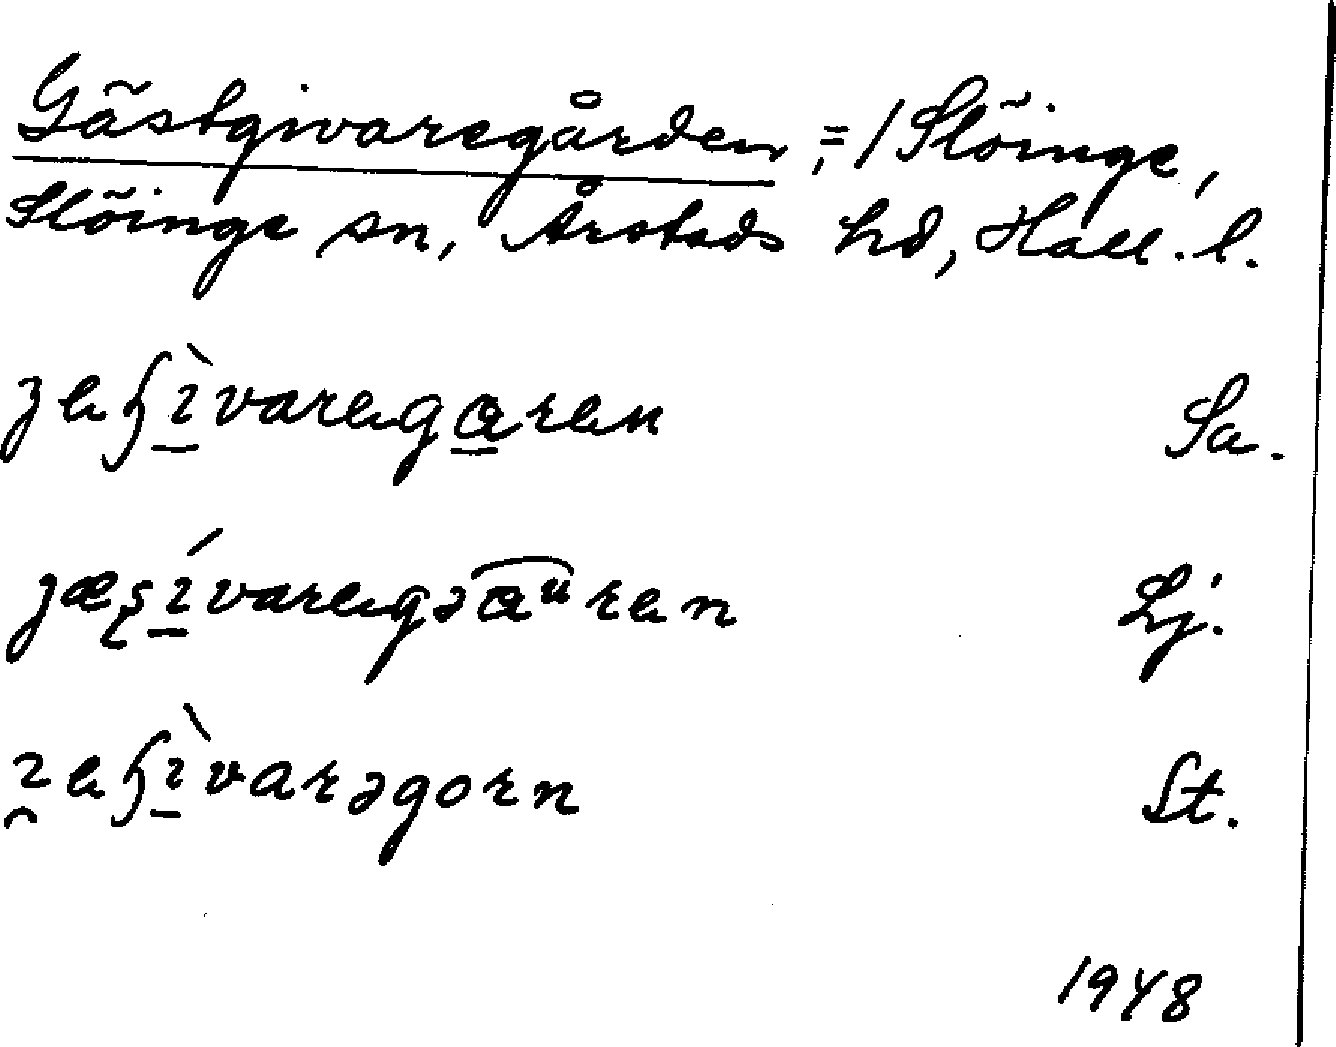 Gästgivaregården, =/Slöinge,
Slöinge sn, Årstads hd, Hall. l.
ɟeʃı̠̀varega̠ren Sa.
ɟæʂı̠́varegəɑ͡ᵘren Lj.
ɟeʃı̠̀varəgorn St.
1948